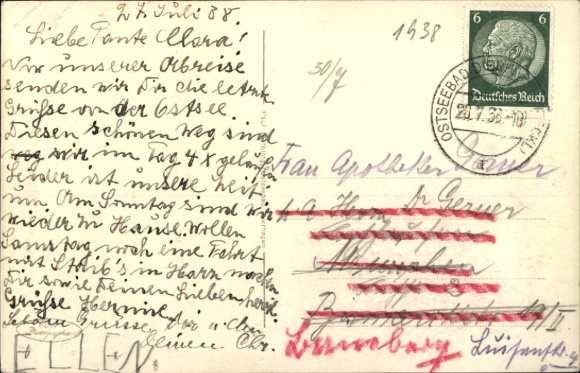 27. Juli 38.
Liebe Tante Clara!
Vor unserer Abreise
senden wir Dir die letzten
Grüsse von der Ostsee.
Diesen schönen Weg sind
weg wir im Tag 4 x gelaufen
Leider ist unsere Zeit
um. Am Sonntag sind wir
wieder zu Hause. Wollen
Samstag noch eine Fahrt
mit in Harz machen
Dir sowie Deinen Lieben herzl.
Grüsse Hermine.
Schöne Grüsse Dir u. den
Deinen Chr.
ELLEN.
1938
30/7
6 6
Deutsches Reich
OSTSEEBAD
Frau Apotheker Gerner
Dr Gerner
München
Bamberg Luisenstr.